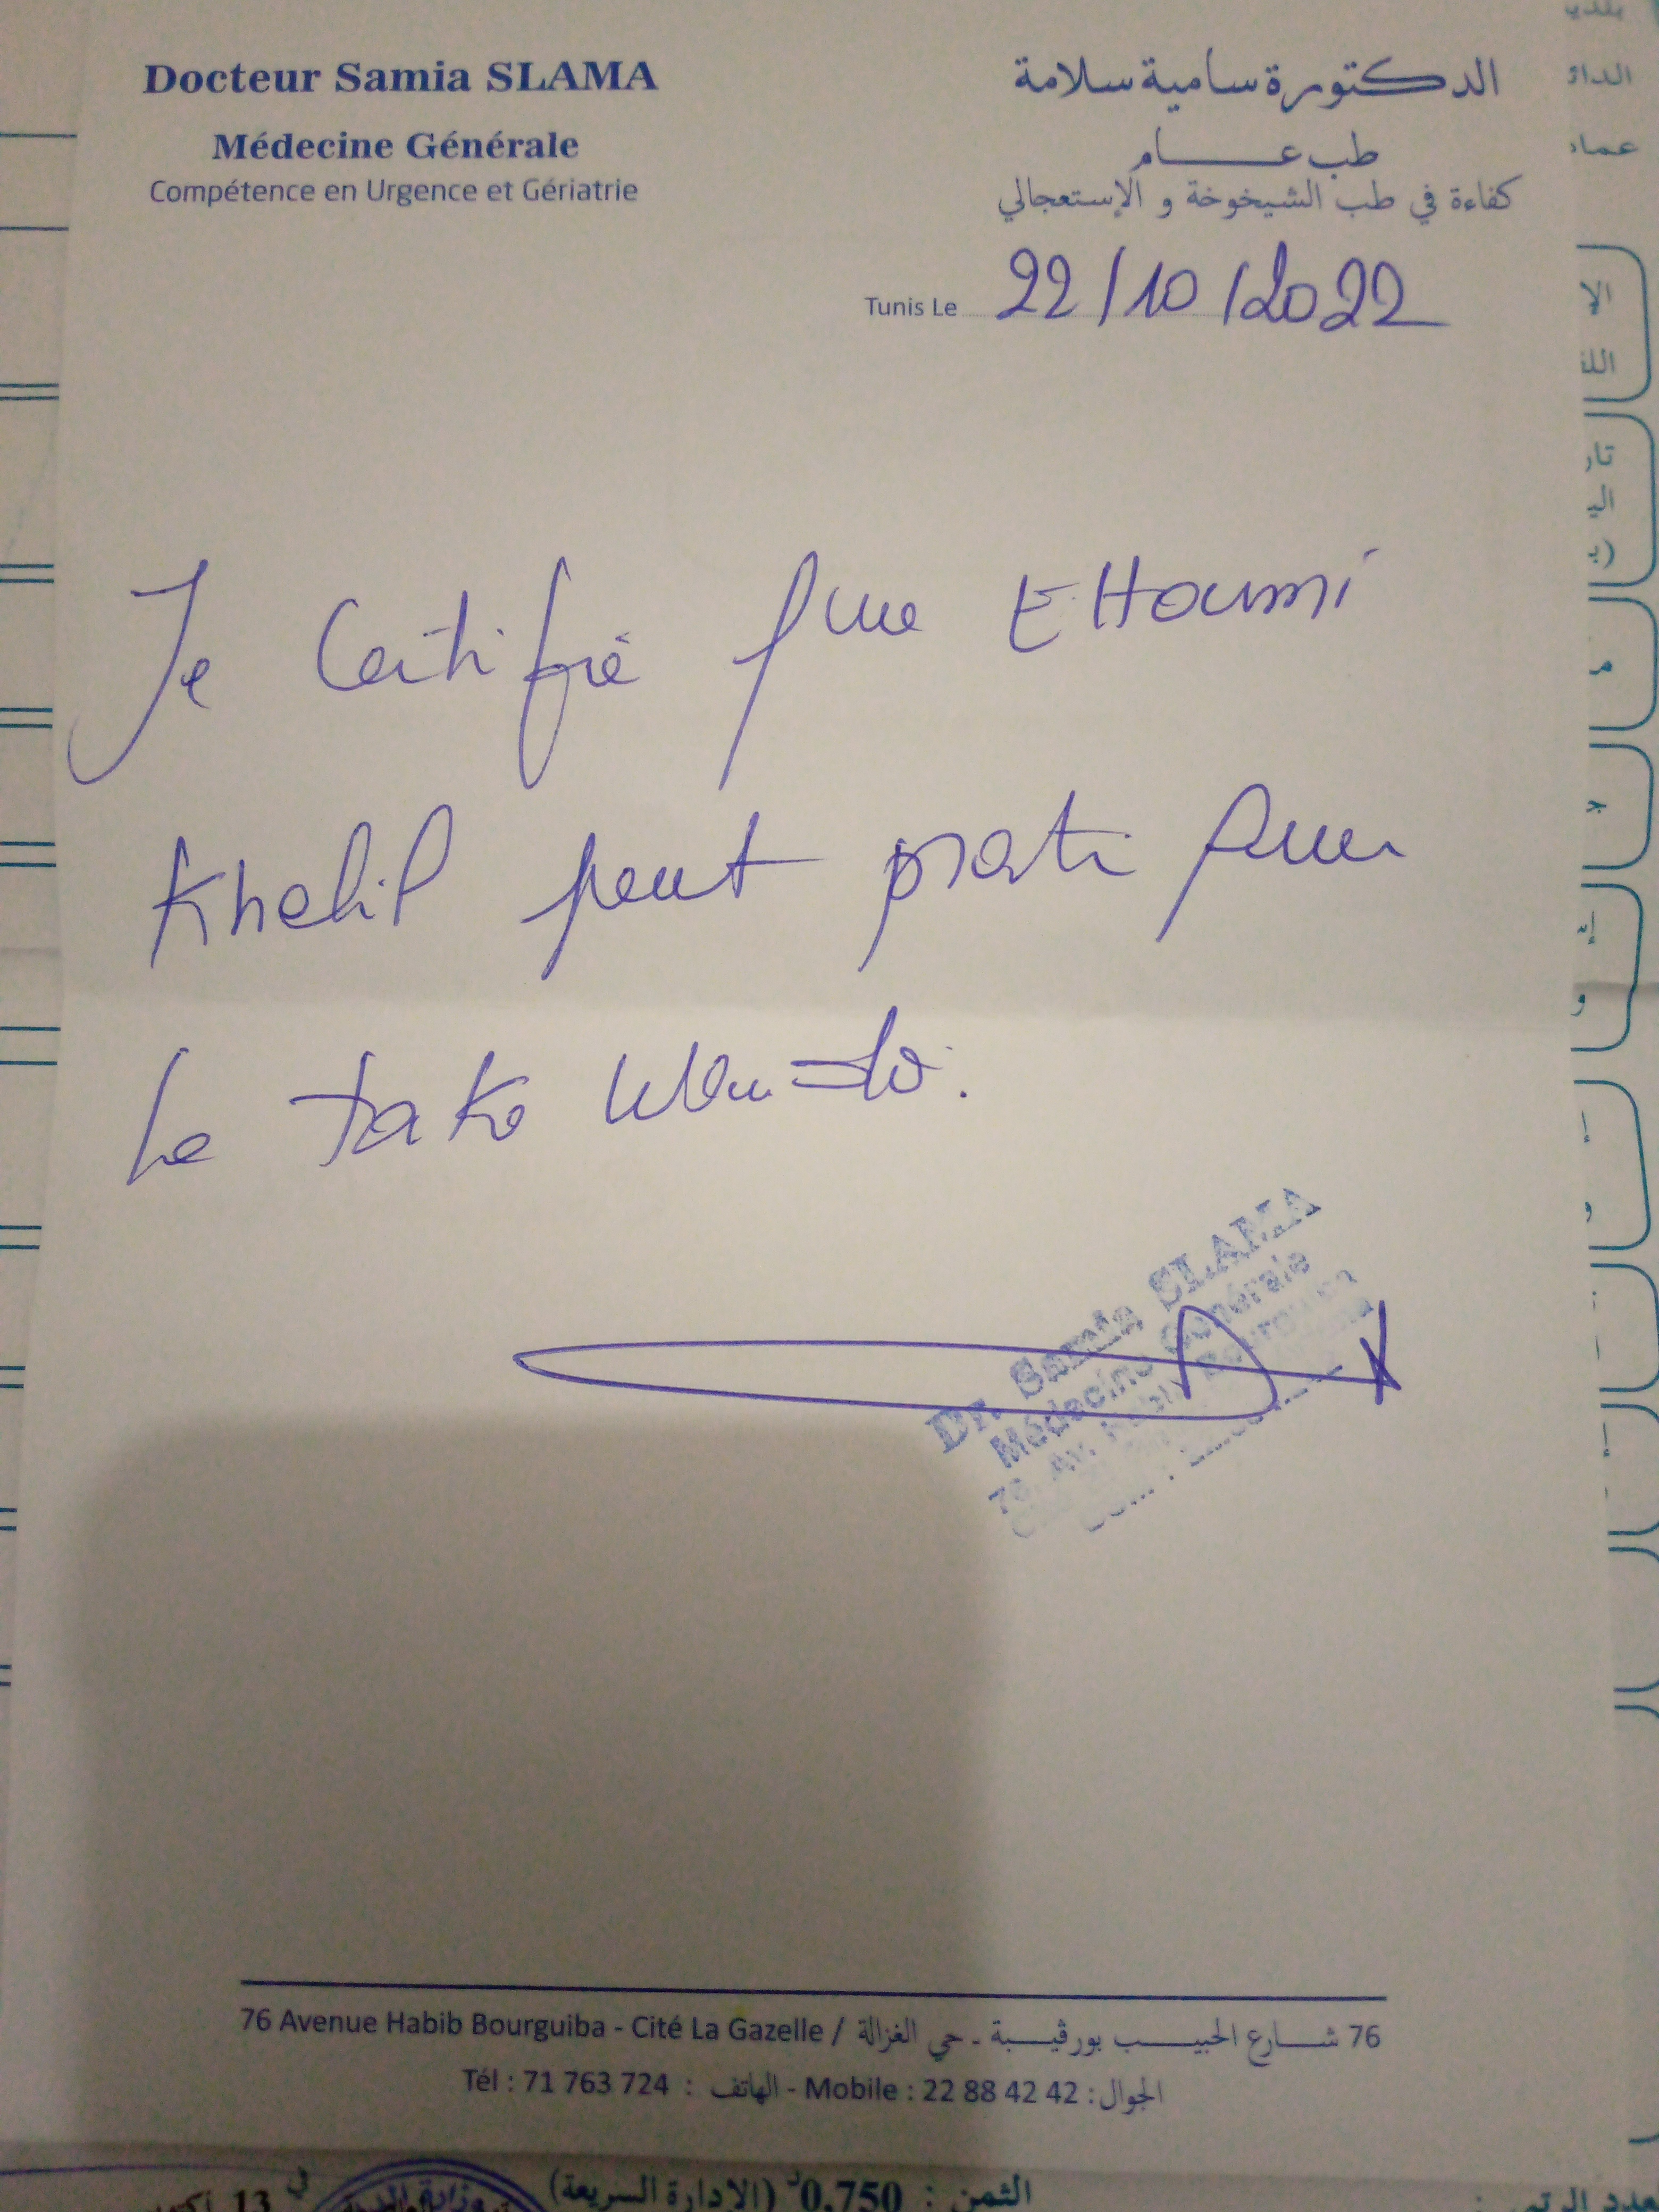 Docteur Samia SLAMA
Médecine Générale
Compétence en Urgence et Gériatrie
الدكتورة سامية سلامة
طب عام
كفاءة في طب الشيخوخة و الإستعجالي
Tunis Le 22/10/2022
Je Certifie que
Khelil peut pratiquer
le take wen-do.
Dr. Samia SLAMA
Médecine Générale
76 Avenue Habib Bourguiba - Cité La Gazelle / 76 شارع الحبيب بورقيبة - حي الغزالة
Tél : 71 763 724 : الهاتف - Mobile : 22 88 42 42 : الجوال
الثمن : 0,750د (الإدارة السريعة)
13